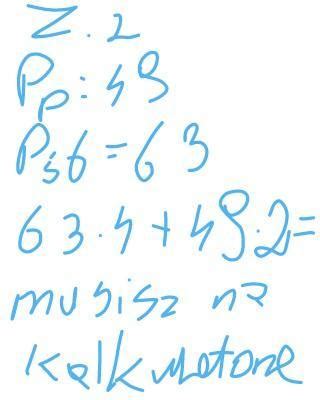 Z. 2
Pp: 49
Pś6 = 63
63.4 + 49.2 =
musisz na
kalkulatorze